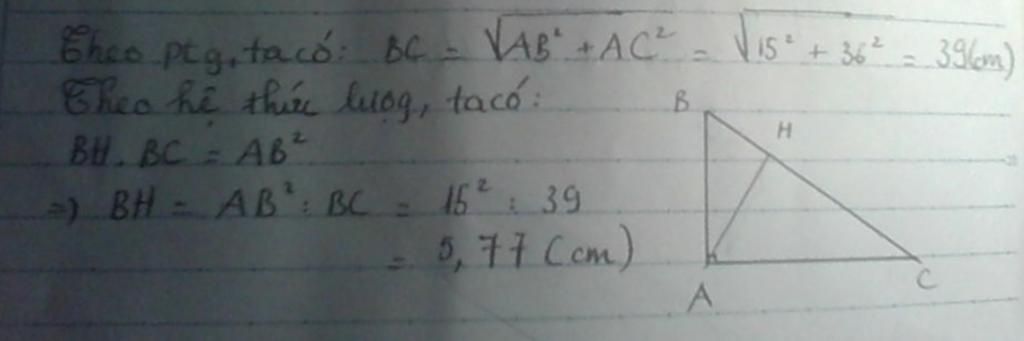 Theo ptg, ta có: BC = √AB² + AC² = √15² + 36² = 39(cm)
Theo hệ thức lượg, ta có:
BH. BC = AB²
=> BH = AB² : BC = 15² : 39
= 5,77 (cm)
B
H
A
C